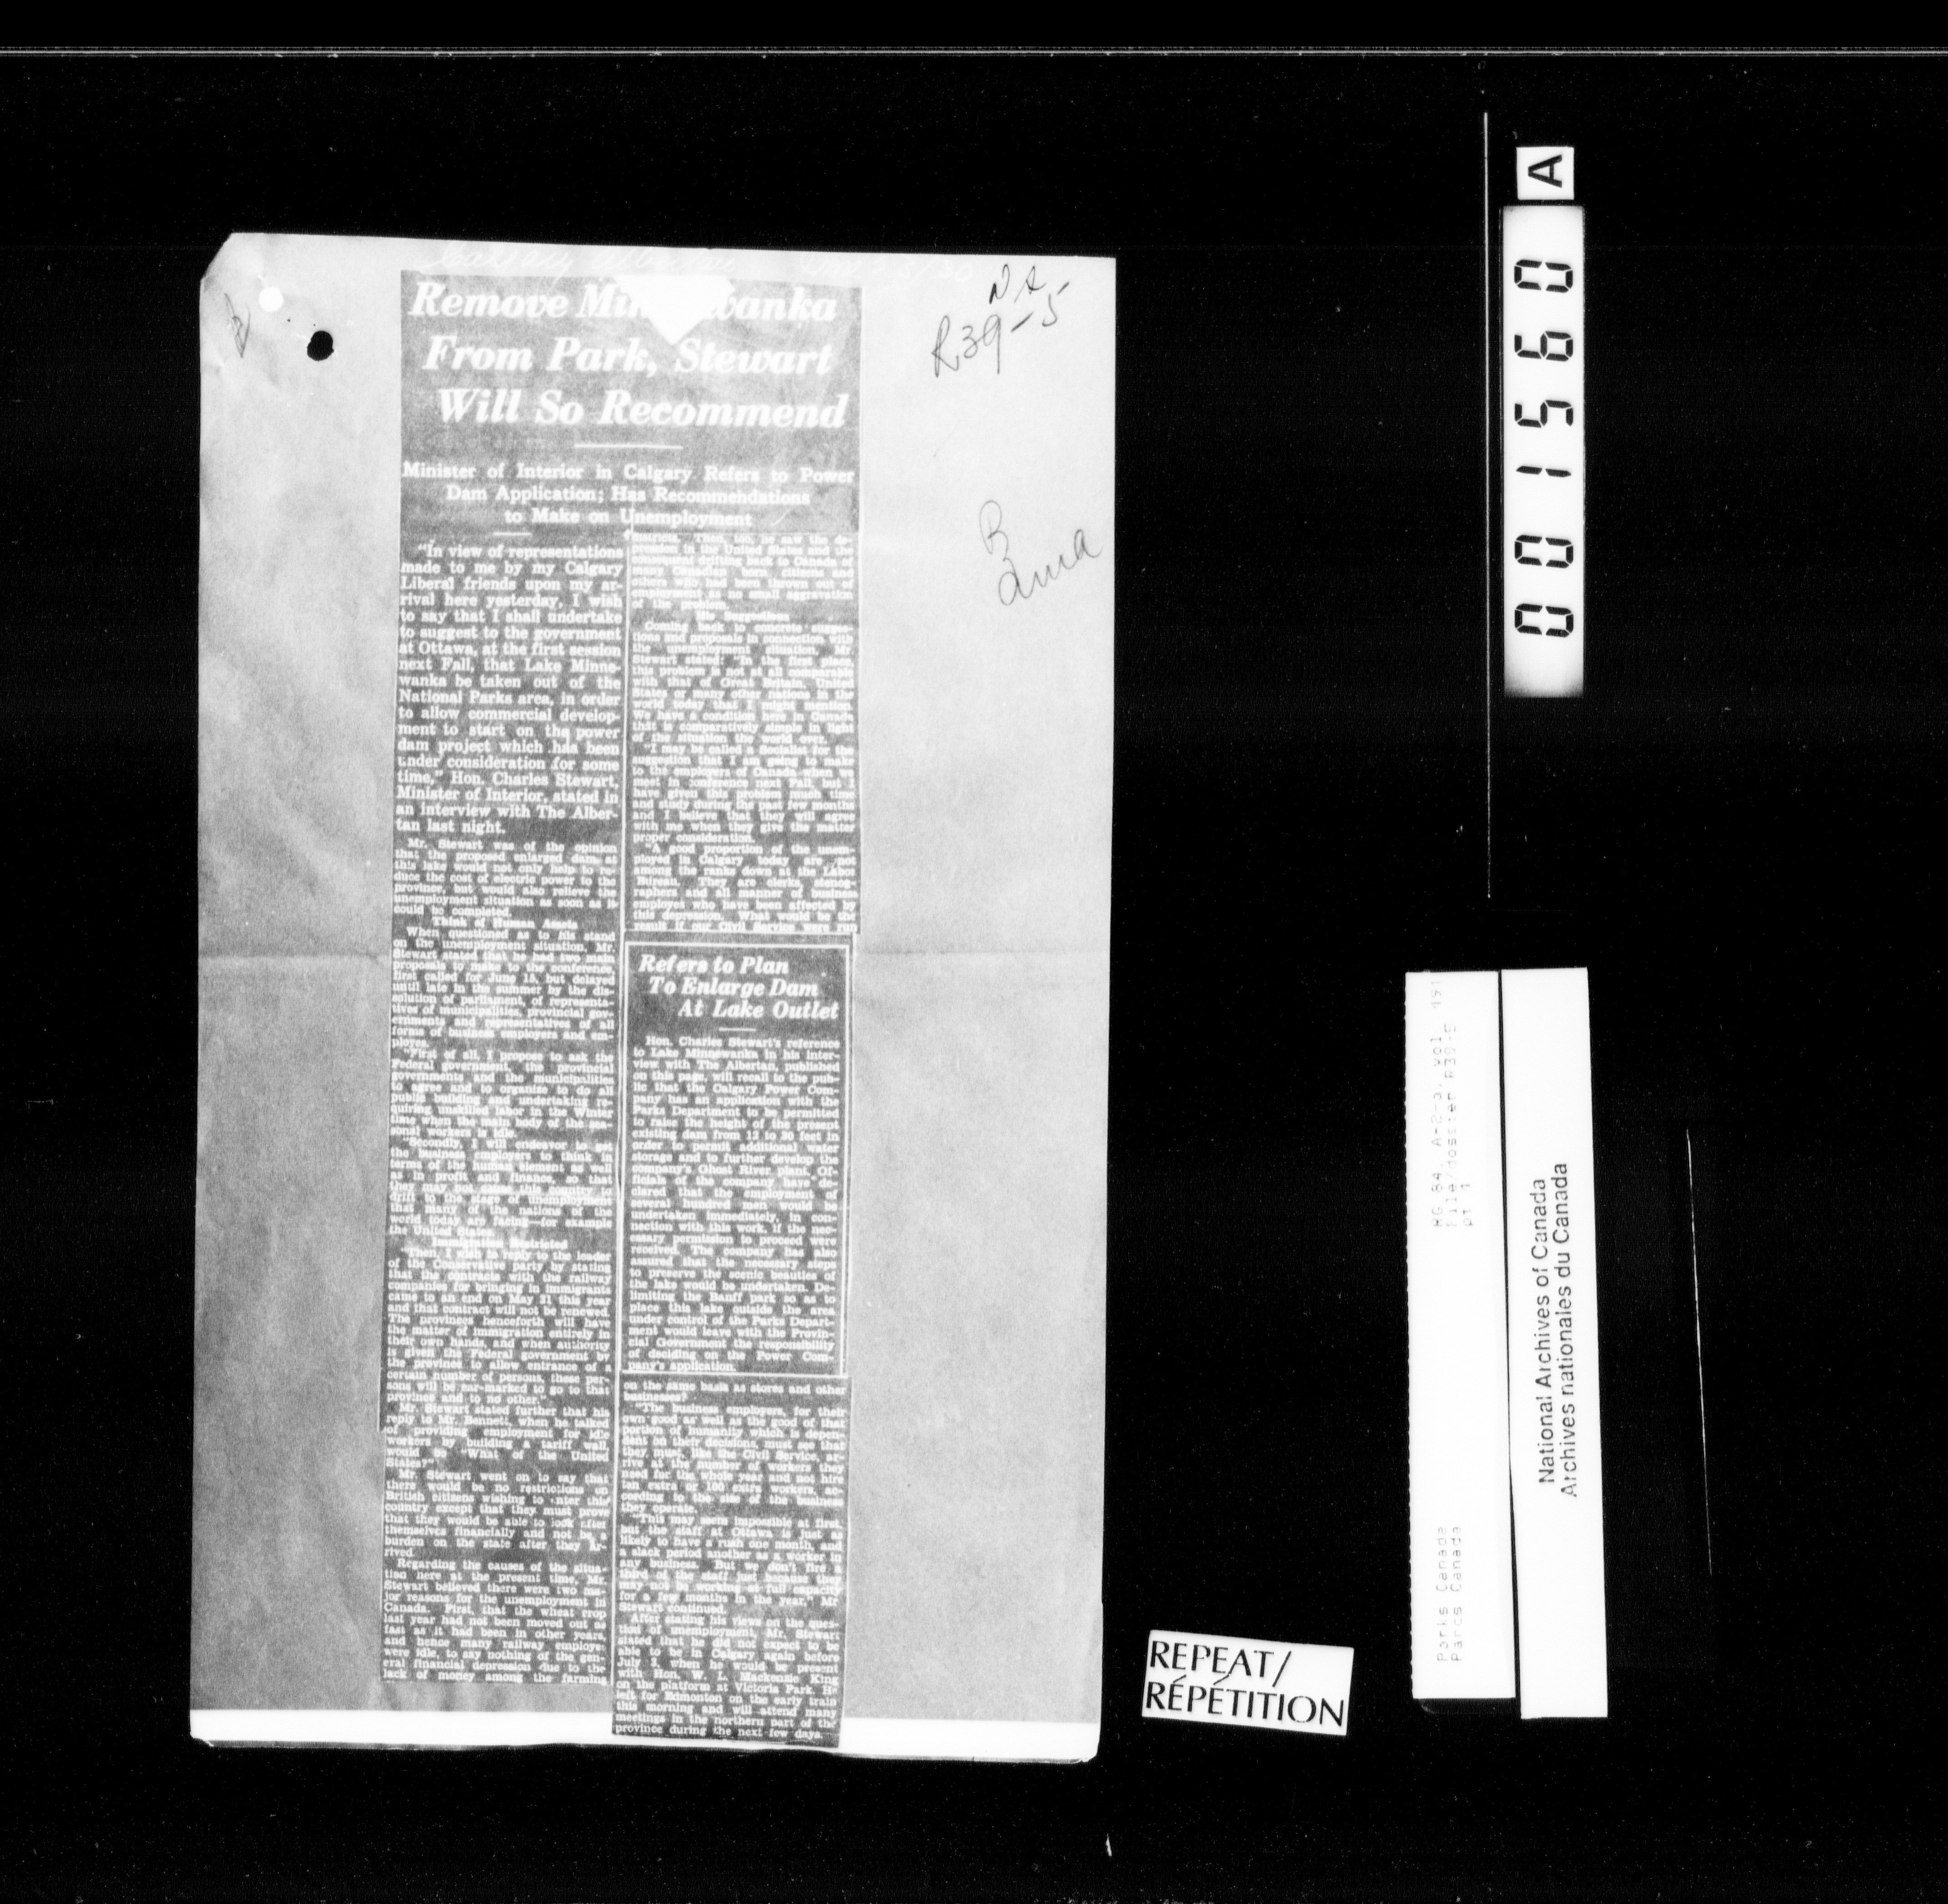 Calgary Albertan
N A
R39-5
B
Remove Minnewanka
From Park, Stewart
Will So Recommend
Minister of Interior in Calgary Refers to Power
Dam Application; Has Recommendations
to Make on Unemployment
"In view of representations
made to me by my Calgary
Liberal friends upon my ar-
rival here yesterday, I wish
to say that I shall undertake
to suggest to the government
at Ottawa, at the first session
next Fall, that Lake Minne-
wanka be taken out of the
National Parks area, in order
to allow commercial develop-
ment to start on the power
dam project which has been
under consideration for some
time," Hon. Charles Stewart,
Minister of Interior, stated in
an interview with The Alber-
tan last night.
Mr. Stewart was of the opinion
that the proposed enlarged dam at
this lake would not only help to re-
duce the cost of electric power to the
province, but would also relieve the
unemployment situation as soon as it
could be completed.
Think of Human Assets
When questioned as to his stand
on the unemployment situation, Mr.
Stewart stated that he had two main
proposals to make to the conference,
first called for June 15, but delayed
until late in the summer by the dis-
solution of parliament, of representa-
tives of municipalities, provincial gov-
ernments and representatives of all
forms of business employers and em-
ployes.
"First of all, I propose to ask the
Federal government, the provincial
governments and the municipalities
to agree and to organize to do all
public building and undertaking re-
quiring unskilled labor in the Winter
time when the main body of the sea-
sonal workers is idle.
"Secondly, I will endeavor to get
the business employers to think in
terms of the human element as well
as in profit and finance, so that
they may not cause this country to
drift to the stage of unemployment
that many of the nations of the
world today are facing—for example
the United States.
Immigration Restricted
"Then, I wish to reply to the leader
of the Conservative party by stating
that the contracts with the railway
companies for bringing in immigrants
came to an end on May 31 this year
and that contract will not be renewed.
The provinces henceforth will have
the matter of immigration entirely in
their own hands, and when authority
is given the Federal government by
the province to allow entrance of a
certain number of persons, these per-
sons will be ear-marked to go to that
province and to no other."
Mr. Stewart stated further that his
reply to Mr. Bennett, when he talked
of providing employment for idle
workers by building a tariff wall,
would be "What of the United
States?"
Mr. Stewart went on to say that
there would be no restrictions on
British citizens wishing to enter this
country except that they must prove
that they would be able to look after
themselves financially and not be a
burden on the state after they ar-
rived.
Regarding the causes of the situa-
tion here at the present time, Mr.
Stewart believed there were two ma-
jor reasons for the unemployment in
Canada. First, that the wheat crop
last year had not been moved out as
fast as it had been in other years,
and hence many railway employes
were idle, to say nothing of the gen-
eral financial depression due to the
lack of money among the farming
districts. Then, too, he saw the de-
pression in the United States and the
consequent drifting back to Canada of
many Canadian born citizens and
others who had been thrown out of
employment as no small aggravation
of the problem.
His Suggestions
Coming back to concrete sugges-
tions and proposals in connection with
the unemployment situation, Mr.
Stewart stated: "In the first place,
this problem is not at all comparable
with that of Great Britain, United
States or many other nations in the
world today that I might mention.
We have a condition here in Canada
that is comparatively simple in light
of the situation the world over.
"I may be called a Socialist for the
suggestion that I am going to make
to the employers of Canada when we
meet in conference next Fall, but I
have given this problem much time
and study during the past few months
and I believe that they will agree
with me when they give the matter
proper consideration.
"A good proportion of the unem-
ployed in Calgary today are not
among the ranks down at the Labor
Bureau. They are clerks, stenog-
raphers and all manner of business
employes who have been affected by
this depression. What would be the
result if our Civil Service were run
Refers to Plan
To Enlarge Dam
At Lake Outlet
Hon. Charles Stewart's reference
to Lake Minnewanka in his inter-
view with The Albertan, published
on this page, will recall to the pub-
lic that the Calgary Power Com-
pany has an application with the
Parks Department to be permitted
to raise the height of the present
existing dam from 12 to 20 feet in
order to permit additional water
storage and to further develop the
company's Ghost River plant. Of-
ficials of the company have de-
clared that the employment of
several hundred men would be
undertaken immediately, in con-
nection with this work, if the nec-
essary permission to proceed were
received. The company has also
assured that the necessary steps
to preserve the scenic beauties of
the lake would be undertaken. De-
limiting the Banff park so as to
place this lake outside the area
under control of the Parks Depart-
ment would leave with the Provin-
cial Government the responsibility
of deciding on the Power Com-
pany's application.
on the same basis as stores and other
businesses?
"The business employers, for their
own good as well as the good of that
portion of humanity which is depen-
dent on their decisions, must see that
they must, like the Civil Service, ar-
rive at the number of workers they
need for the whole year and not hire
ten extra or 100 extra workers, ac-
cording to the size of the business
they operate.
"This may seem impossible at first,
but the staff at Ottawa is just as
likely to have a rush one month, and
a slack period another as a worker in
any business. But we don't fire a
third of the staff just because they
may not be working at full capacity
for a few months in the year," Mr
Stewart continued.
After stating his views on the ques-
tion of unemployment, Mr. Stewart
stated that he did not expect to be
able to be in Calgary again before
July 3, when he would be present
with Hon. W. L. Mackenzie King
on the platform at Victoria Park. He
left for Edmonton on the early train
this morning and will attend many
meetings in the northern part of the
province during the next few days.
REPEAT/
RÉPÉTITION
001560 A
RG 84, A-2-a, vol. 191
File/dossier R39-5
pt 1
Parks Canada
Parcs Canada
National Archives of Canada
Archives nationales du Canada